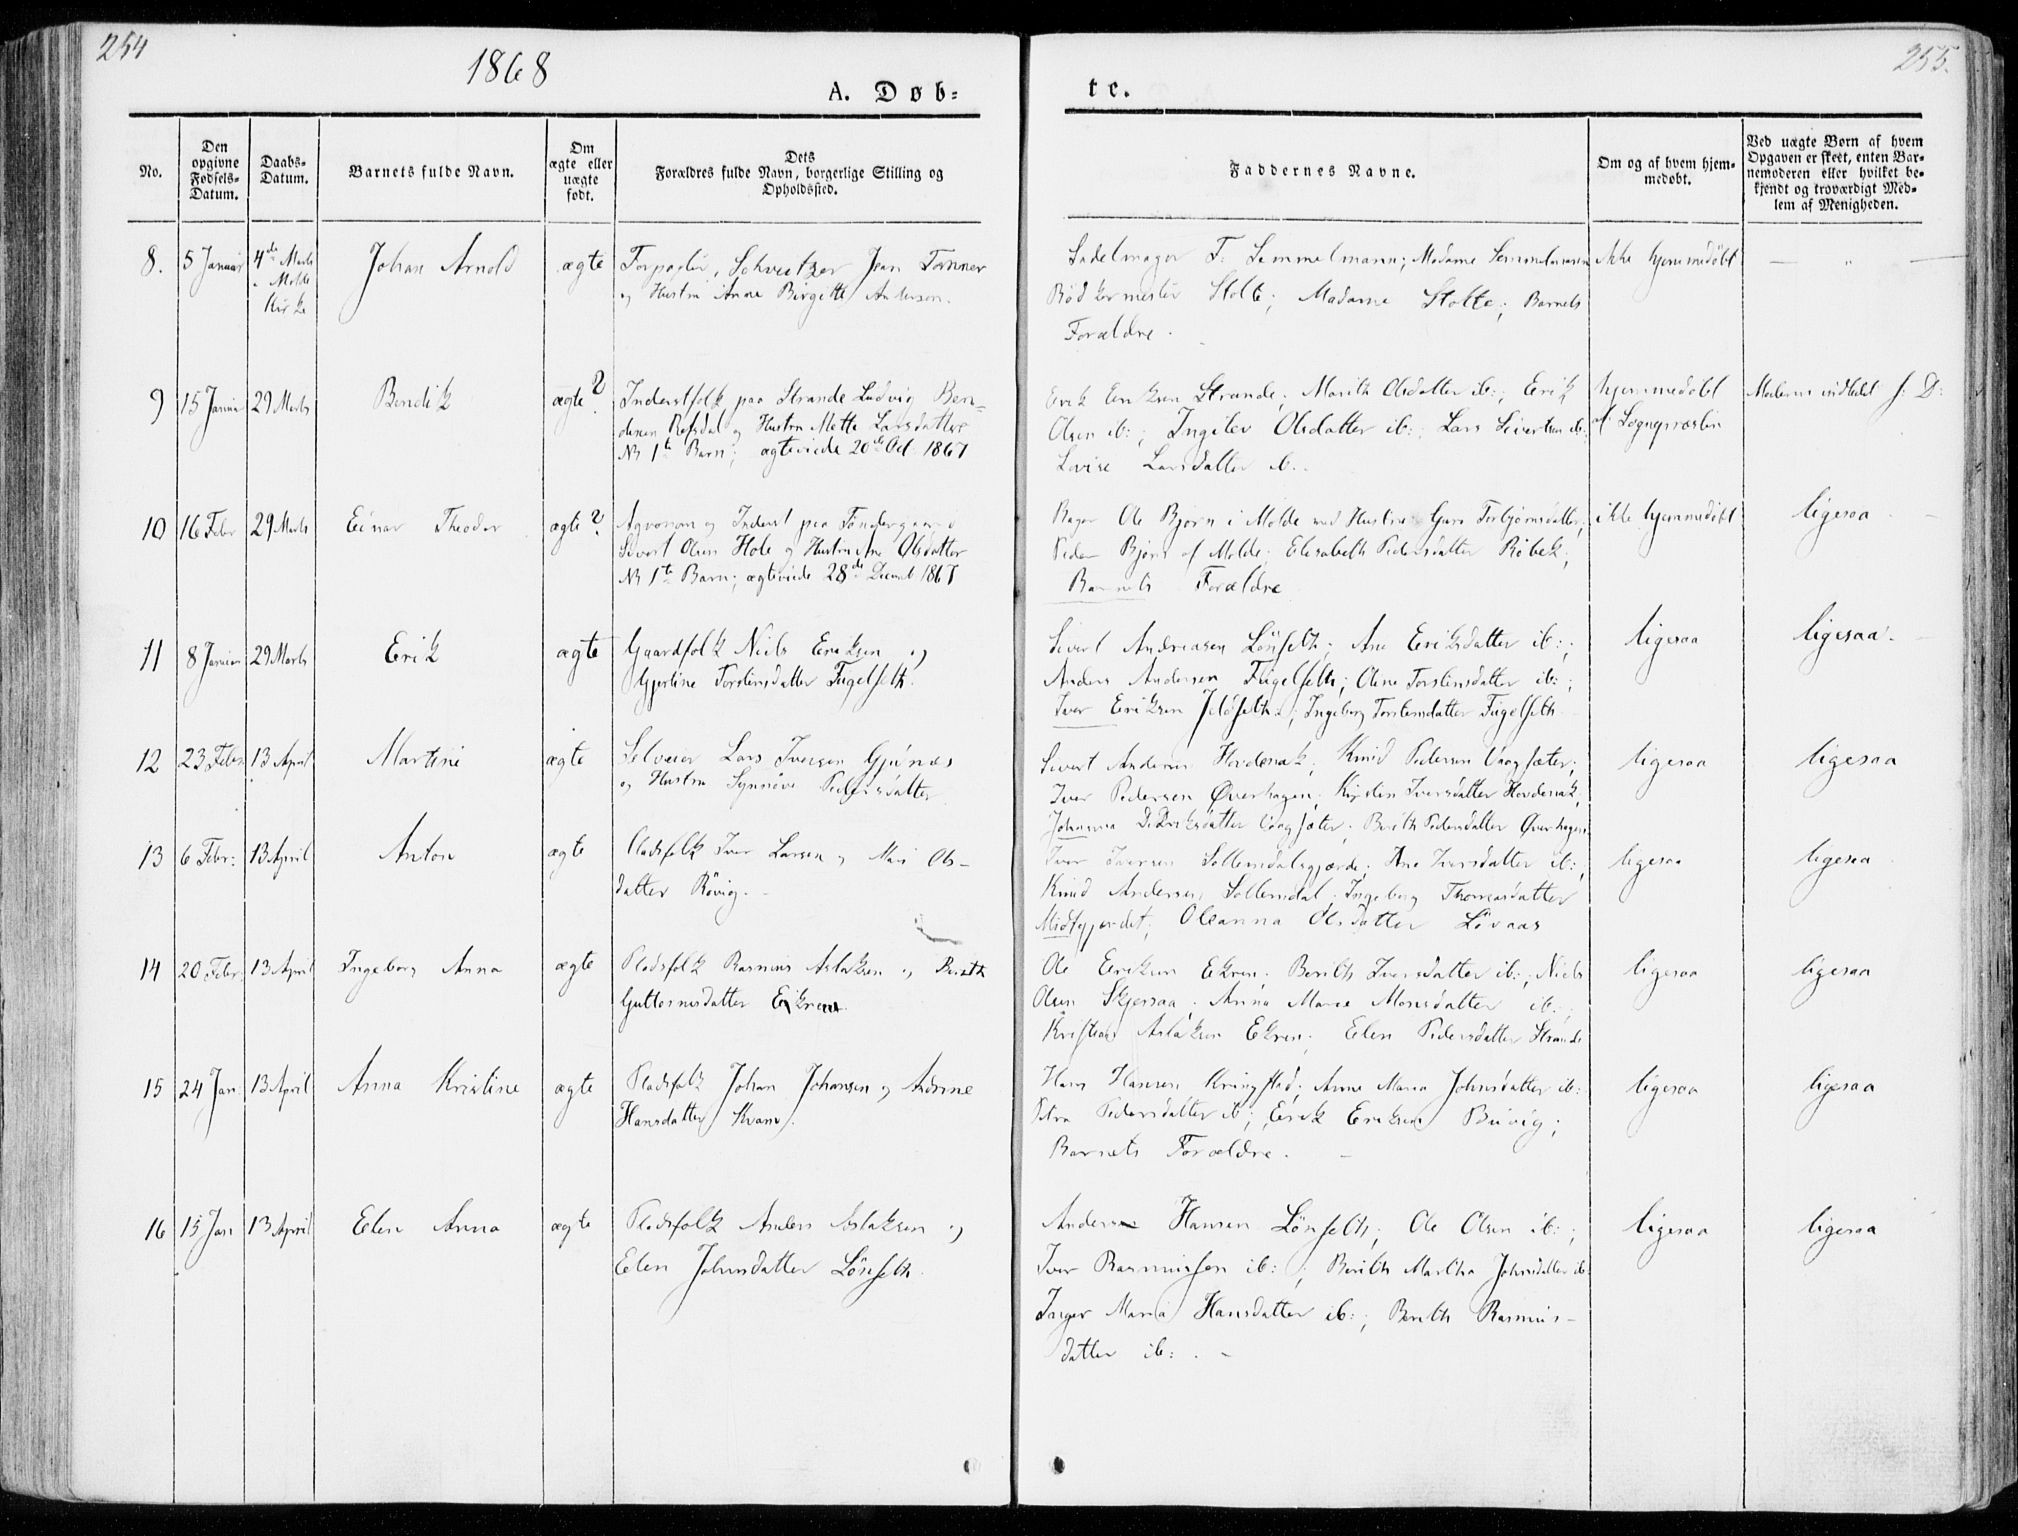 254
1868
A. Døb=
te.
255.
No.
Den opgivne Fødsels-Datum.
Daabs-Datum.
Barnets fulde Navn.
Om ægte eller uægte født.
Dets Forældres fulde Navn, borgerlige Stilling og Opholdssted.
Faddernes Navne.
Om og af hvem hjemmedøbt.
Ved uægte Børn af hvem Opgaven er skeet, enten Barnemoderen eller hvilket bekjendt og troværdigt Medlem af Menigheden.
8. 5 Januar 4de Marts Molde Kirke Johan Arnold ægte
Schveitzer Jean Tanner
og Hustru Anne Birgitte Andersen.
Sadelmager T. Semmelmann; Madame Semmelmann ikke hjemmedøbt — " —
Bødkermester Stolte; Madame Stolte; Barnets
Forældre.
9 15 Januar 29 Marts Bendik ægte?
Inderstfolk paa Strande Ludvig Ben-
diksen Refsdal og Hustru Mette Larsdatter
No 1te Barn; ægteviede 20de Oct 1867
Erik Eriksen Strande; Marith Olsdatter ib:; Erik hjemmedøbt
Olsen ib:; Ingeler Olsdatter ib:; Lars Sivertsen ib: af Sognepræsten
Lovise Larsdatter ib.
Moderen indledet f: D:
10 16 Febr 29 Marts Einar Theodor ægte?
Agronom og Inderst paa Tøndergaard
Sivert Olsen Hole og Hustru Ane Olsdatter
No 1te Barn; ægteviede 28de Decemb 1867
Bager Ole Bjørn i Molde med Hustru Guro Torbjørnsdatter; ikke hjemmedøbt ligesaa
Peder Bjørn af Molde; Elisabeth Pedersdatter Røbek;
Barnets Forældre
11 8 Januar 29 Marts Erik ægte
Gaardfolk Niels Eriksen og
Gjertine Torstensdatter Fugelseth.
Sivert Andreasen Lønseth; Ane Eriksdatter ib:; ligesaa ligesaa.
Anders Andersen Fugelseth; Oline Torstensdatter ib:;
Iver Eriksen Jeløseth; Ingeborg Torstensdatter Fugelseth
12 23 Febr 13 April Martine ægte
Selveier Lars Iversen Gjøjnæs
og Hustru Synnøve Pedersdatter
Sivert Andersen Hovdenak; Knud Pedersen Vaagsæter; ligesaa ligesaa
Iver Pedersen Øverhagen; Kirsten Iversdatter Hovdenak;
Johanna Didriksdatter Vaagsæter; Berith Pedersdatter Øverhagen
13 6 Febr: 13 April Anton ægte
Pladsfolk Iver Larsen og Mari Ols-
datter Røvig.
Iver Iversen Sollemdalsgjærde; Ane Iversdatter ib:; ligesaa ligesaa
Knud Andersen Sollemdal; Ingeborg Thomasdatter
Midtgjerdet; Oleanna Olsdatter Løvaas
14 20 Febr: 13 April Ingeborg Anna ægte
Pladsfolk Rasmus Aslaksen og Berith
Guttormsdatter Eikrem.
Ole Eriksen Ekren; Berith Iversdatter ib:; Niels ligesaa ligesaa
Olsen Skjersaa; Anna Marie Monsdatter ib:;
Kristian Aslaksen Ekren; Elen Pedersdatter Strande
15 24 Jan 13 April Anna Kristine ægte
Pladsfolk Johan Johansen og Andrine
Hansdatter Kvam.
Hans Hansen Kringstad; Anne Maria Johnsdatter ib: ligesaa ligesaa
Petra Pedersdatter ib; Erik Eriksen Buvig;
Barnets Forældre.
16 15 Jan 13 April Elen Anna ægte
Pladsfolk Anders Aslaksen og
Elen Johnsdatter Lønseth.
Anders Hansen Lønseth; Ole Olsen ib:; ligesaa ligesaa
Iver Rasmussen ib:; Berith Martha Johnsdatter ib:
Inger Maria Hansdatter ib:; Berith Rasmus-
datter ib:.